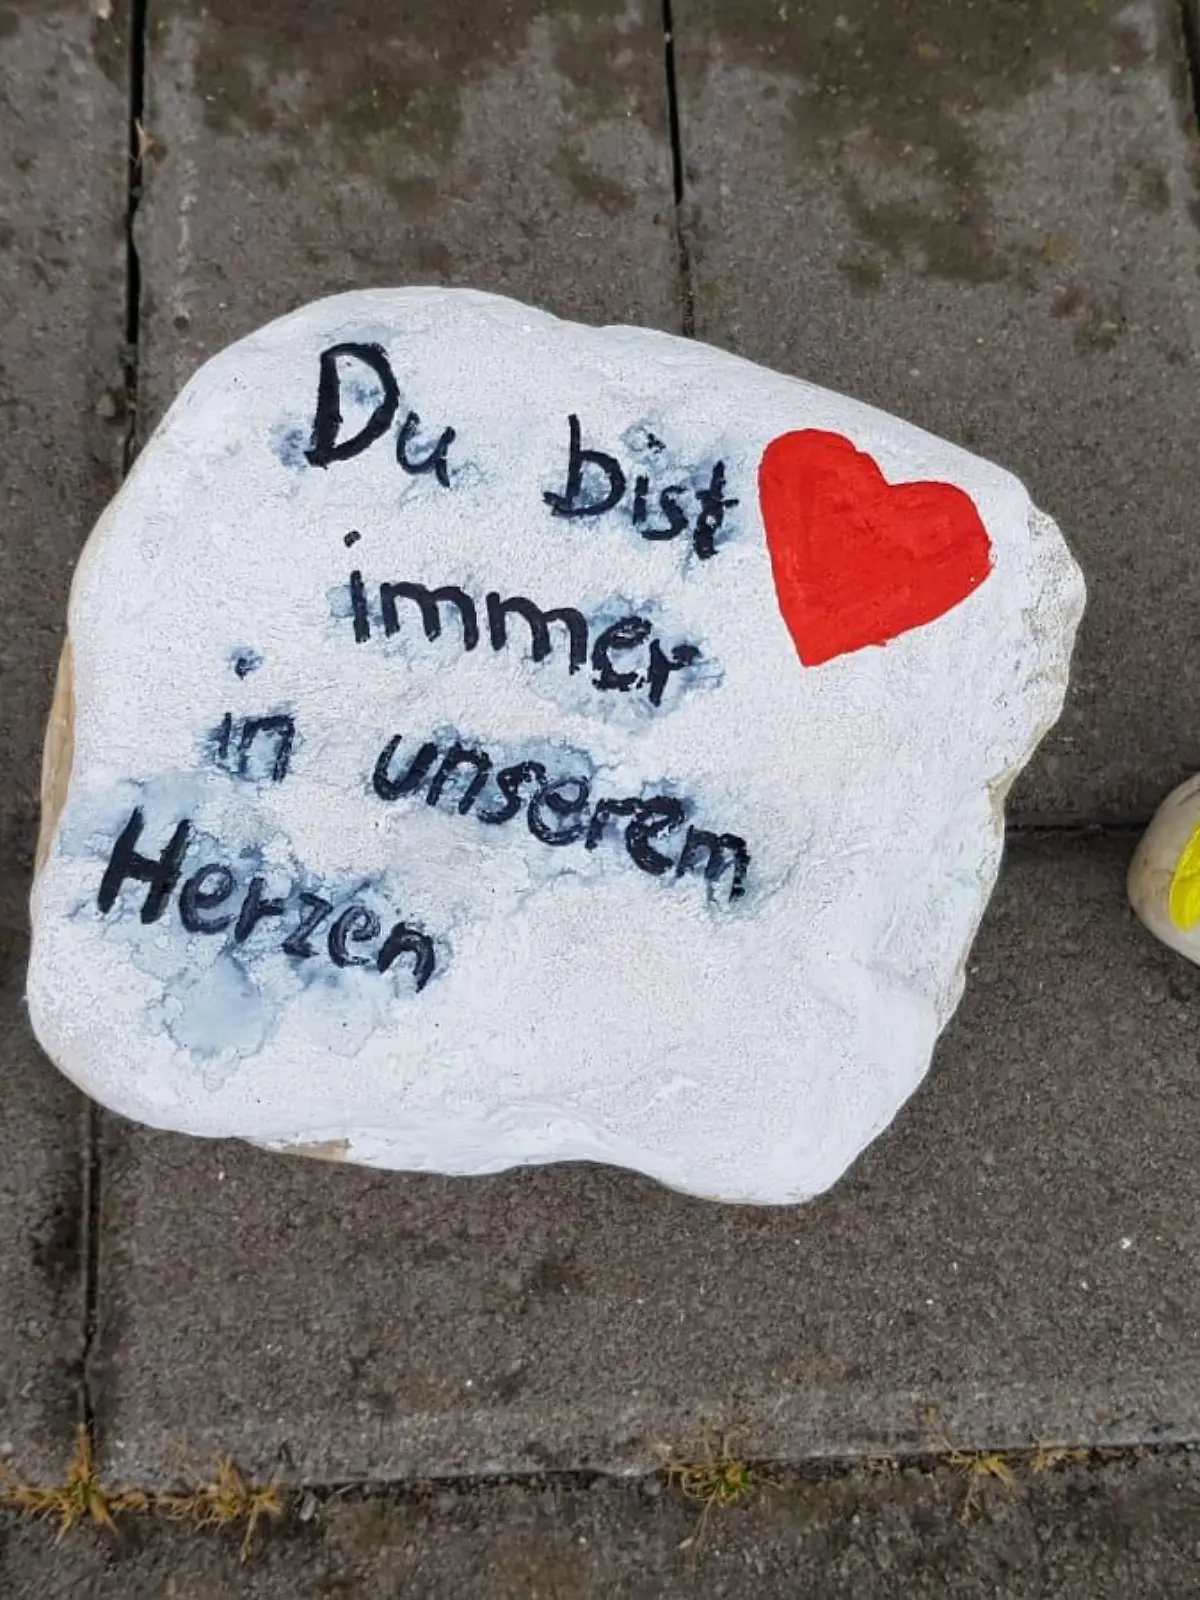 Du bist
immer
in unserem
Herzen